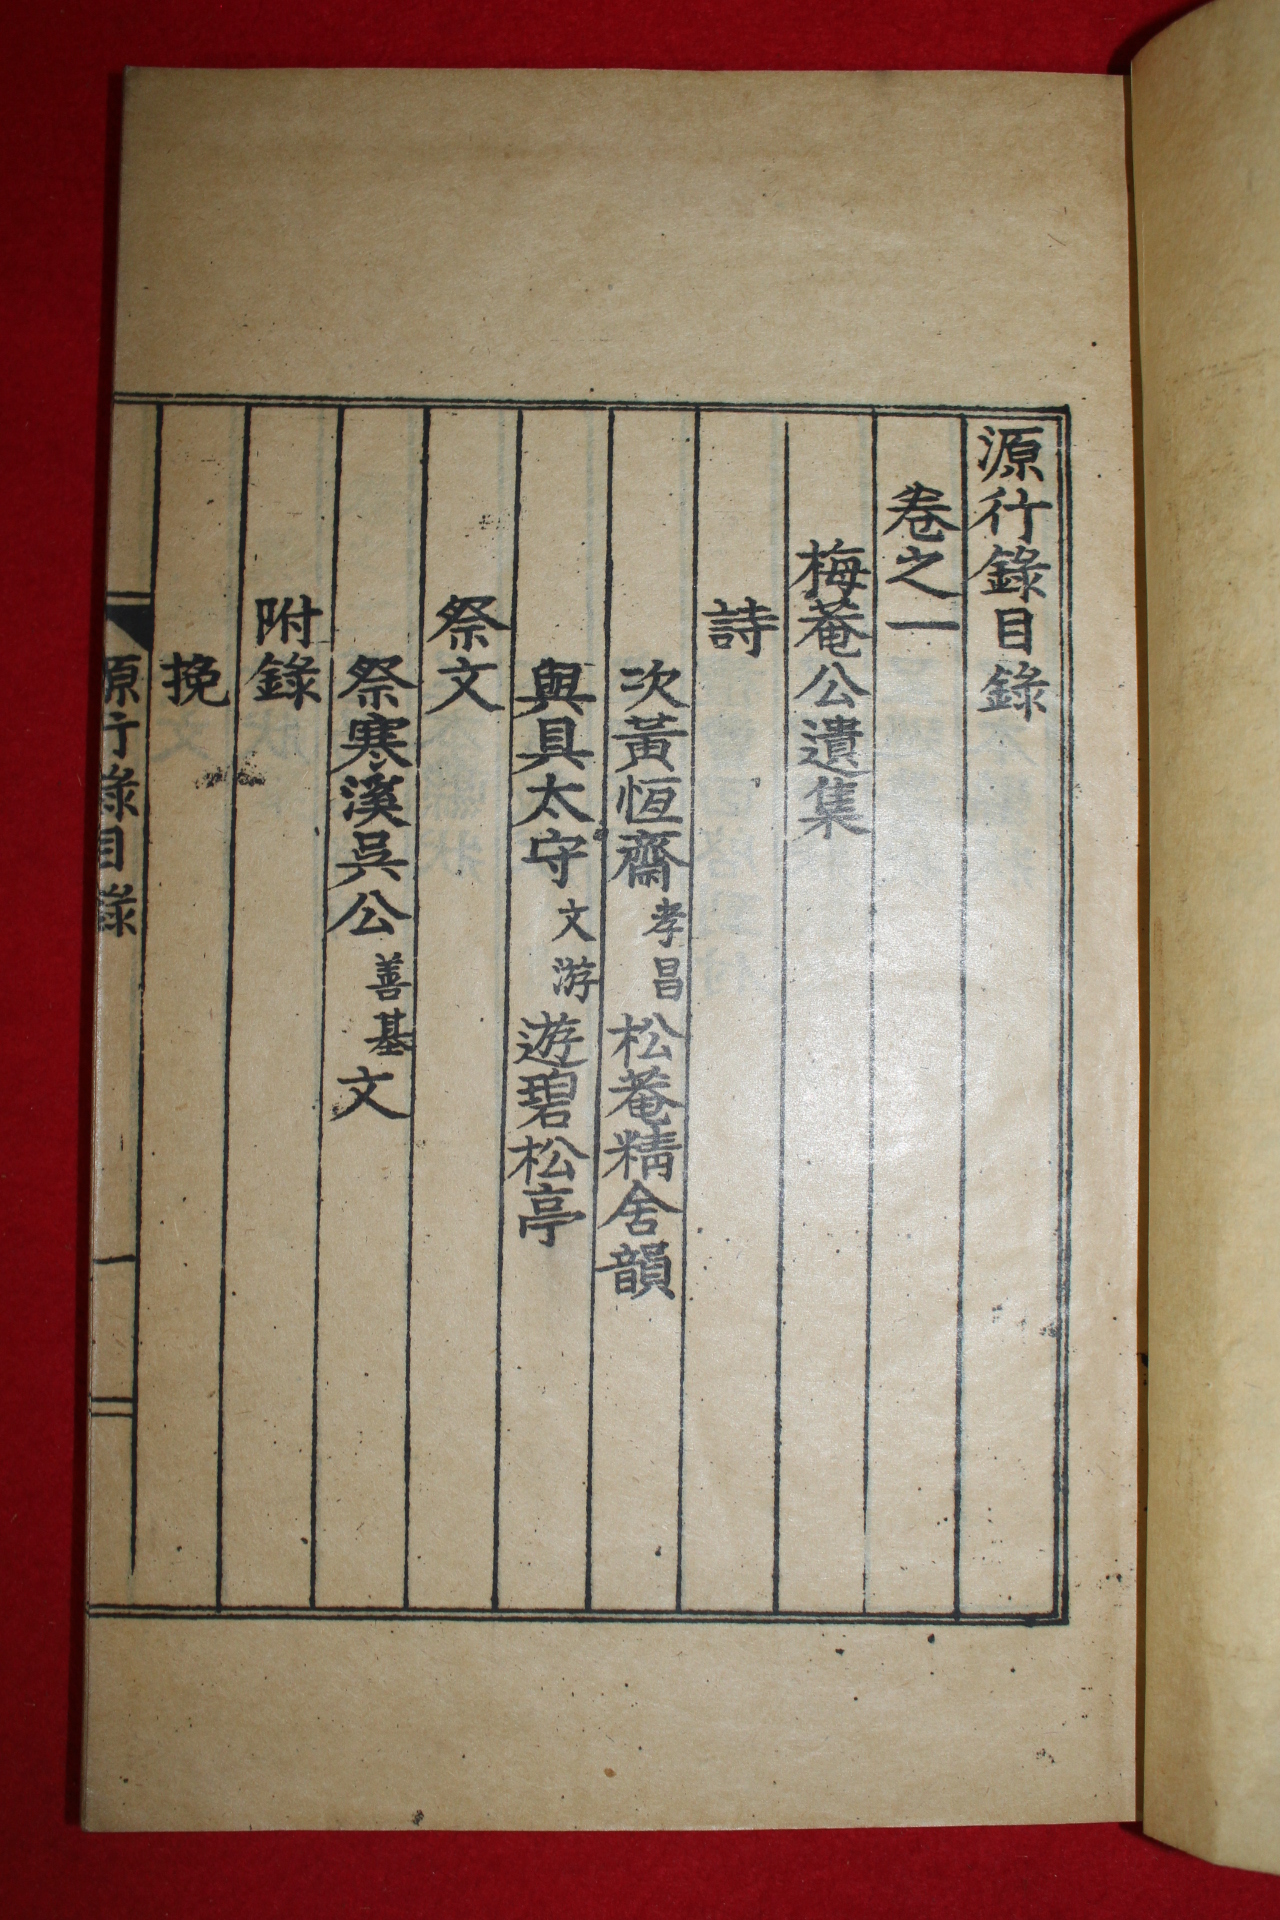 源行錄目錄
卷之一
梅菴公遺集
詩
次黃恒齋孝昌松菴精舍韻
與具太守文游遊碧松亭
祭文
祭寒溪吳公善基文
附錄
挽
源行錄目錄 一